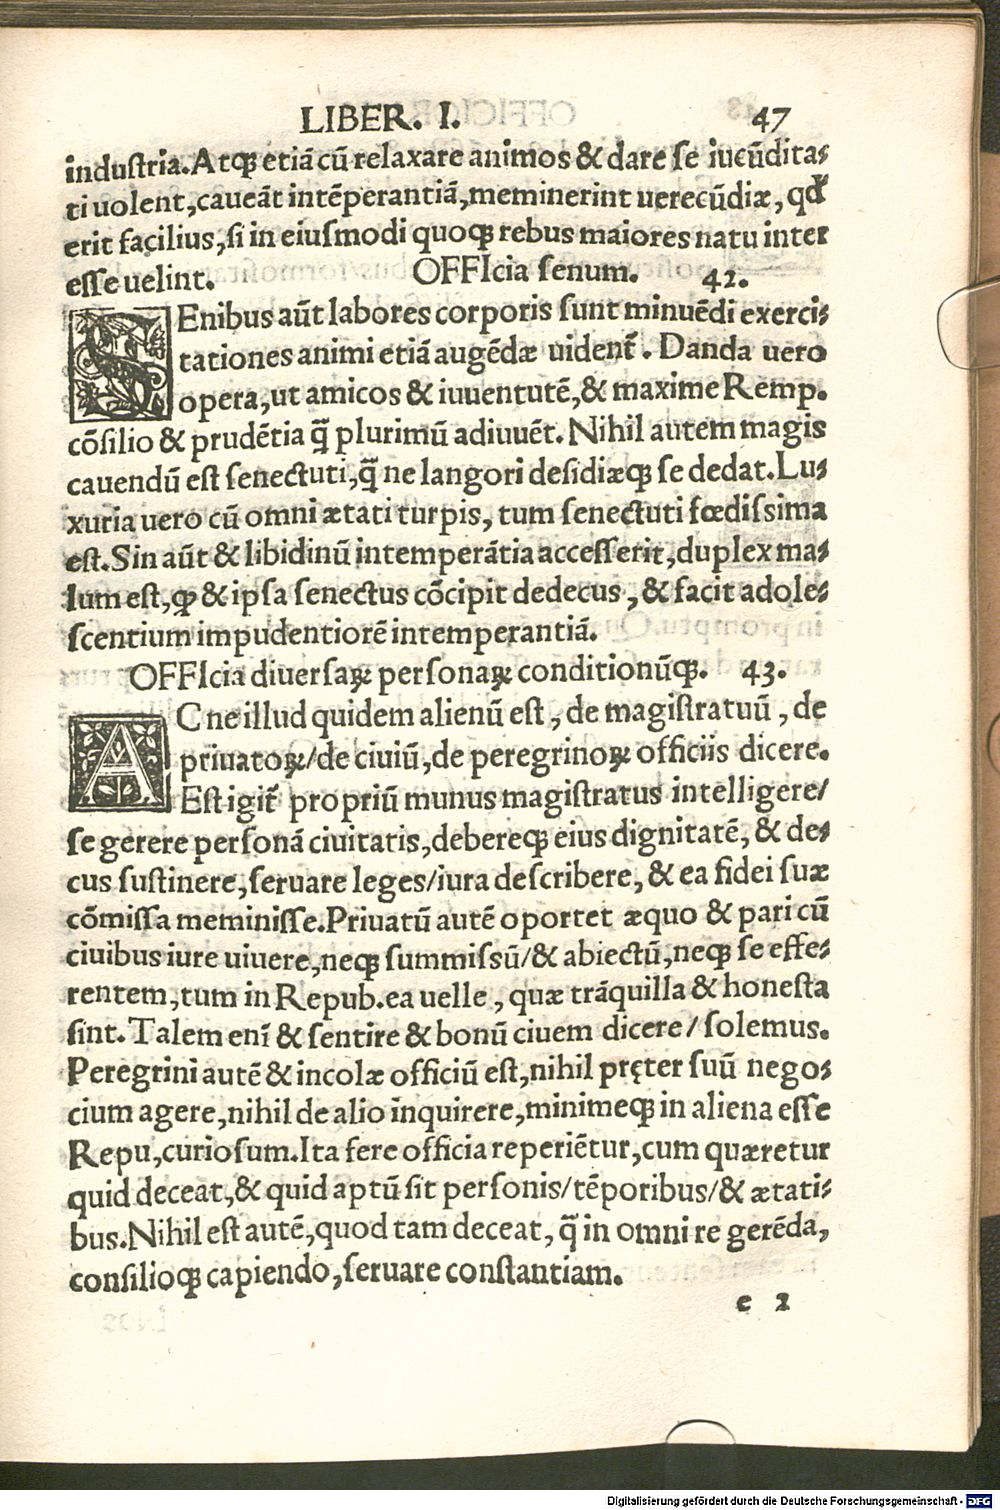 LIBER. I. 47
induſtria. Atqꝫ etiā cū relaxare animos & dare ſe iucūdita⸗
ti uolent, caueāt intēperantiā, meminerint uerecūdiæ, qđ
erit facilius, ſi in eiuſmodi quoqꝫ rebus maiores natu inter
eſſe uelint. OFFIcia ſenum. 42.
SEnibus aūt labores corporis ſunt minuēdi exerci⸗
tationes animi etiā augēdæ uidenť. Danda uero
opera, ut amicos & iuuentutē, & maxime Remp.
cōſilio & prudētia q̄ plurimū adiuuēt. Nihil autem magis
cauendū eſt ſenectuti, q̄ ne langori deſidiæqꝫ ſe dedat. Lu⸗
xuria uero cū omni ætati turpis, tum ſenectuti fœdiſsima
eſt. Sin aūt & libidinū intemperātia acceſſerit, duplex ma⸗
lum eſt, ꝙ & ipſa ſenectus cōcipit dedecus, & facit adole⸗
ſcentium impudentiorē intemperantiā.
OFFIcia diuerſaꝝ perſonaꝝ conditionūqꝫ. 43.
AC ne illud quidem alienū eſt, de magiſtratuū, de
priuatoꝝ/de ciuiū, de peregrinoꝝ officiis dicere.
Eſt igiť propriū munus magiſtratus intelligere/
ſe gerere perſonā ciuitatis, debereqꝫ eius dignitatē, & de⸗
cus ſuſtinere, ſeruare leges/iura deſcribere, & ea fidei ſuæ
cōmiſſa meminiſſe. Priuatū autē oportet æquo & pari cū
ciuibus iure uiuere, neqꝫ ſummiſsū/& abiectū, neqꝫ ſe effe⸗
rentem, tum in Repub. ea uelle, quæ trāquilla & honeſta
ſint. Talem enī & ſentire & bonū ciuem dicere/ſolemus.
Peregrini autē & incolæ officiū eſt, nihil pręter ſuū nego⸗
cium agere, nihil de alio inquirere, minimeqꝫ in aliena eſſe
Repu, curioſum. Ita fere officia reperiētur, cum quæretur
quid deceat, & quid aptū ſit perſonis/tēporibus/& ætati⸗
bus. Nihil eſt autē, quod tam deceat, q̄ in omni re gerēda,
conſilioqꝫ capiendo, ſeruare conſtantiam.
e 2
Digitalisierung gefördert durch die Deutsche Forschungsgemeinschaft - DFG